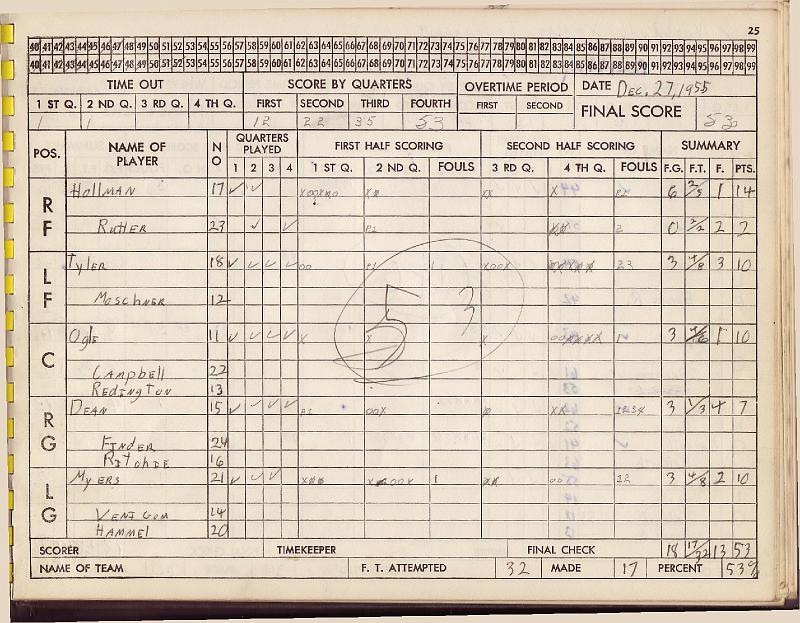 25
40 41 42 43 44 45 46 47 48 49 50 51 52 53 54 55 56 57 58 59 60 61 62 63 64 65 66 67 68 69 70 71 72 73 74 75 76 77 78 79 80 81 82 83 84 85 86 87 88 89 90 91 92 93 94 95 96 97 98 99
40 41 42 43 44 45 46 47 48 49 50 51 52 53 54 55 56 57 58 59 60 61 62 63 64 65 66 67 68 69 70 71 72 73 74 75 76 77 78 79 80 81 82 83 84 85 86 87 88 89 90 91 92 93 94 95 96 97 98 99
TIME OUT SCORE BY QUARTERS OVERTIME PERIOD DATE Dec. 27, 1955
1 ST Q. 2 ND Q. 3 RD Q. 4 TH Q. FIRST SECOND THIRD FOURTH FIRST SECOND FINAL SCORE 53
1 1 12 22 35 53
POS. NAME OF PLAYER NO QUARTERS PLAYED FIRST HALF SCORING SECOND HALF SCORING SUMMARY
1 2 3 4 1 ST Q. 2 ND Q. FOULS 3 RD Q. 4 TH Q. FOULS F.G. F.T. F. PTS.
RF Hollman 17 6 2/5 1 14
Rutter 23 2 0 2/2 2 2
LF Tyler 18 3 4/8 3 10
Moschner 12
53
C Ogle 11 3 4/6 1 10
Campbell 22
Redington 13
RG Dean 15 1234 3 1/3 4 7
Finder 24
Ritchie 16
LG Myers 21 1 12 3 4/8 2 10
14
Hammel 20
SCORER TIMEKEEPER FINAL CHECK 18 17/32 13 53
NAME OF TEAM F. T. ATTEMPTED 32 MADE 17 PERCENT 53%